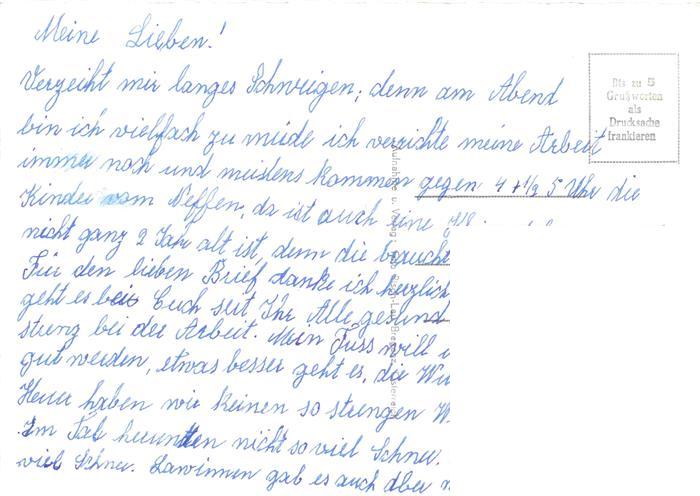 Meine Lieben!
Verzeiht mir langes Schweigen; denn am Abend
bin ich vielfach zu müde ich verrichte meine Arbeit
immer noch und meistens kommen gegen 4 + 1/2 5 Uhr die
Kinder vom Neffen, da ist auch eine
nicht ganz 2 Jahr alt ist, denn die braucht
Für den lieben Brief danke ich herzlich
geht es bei Euch seit Ihr Alle gesund
streng bei der Arbeit. Mein Fuss will
gut werden, etwas besser geht es, die
Heuer haben wir keinen so strengen
Im Tal herunten nicht so viel Schnee.
viel Schnee. Lawinen gab es auch aber
Bis zu 5
Grußworten
als
Drucksache
frankieren